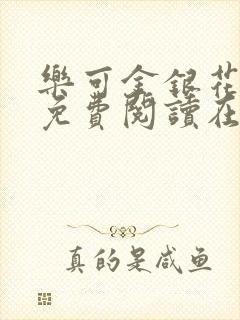 樂可金銀花
免費閱讀在
真的是咸鱼